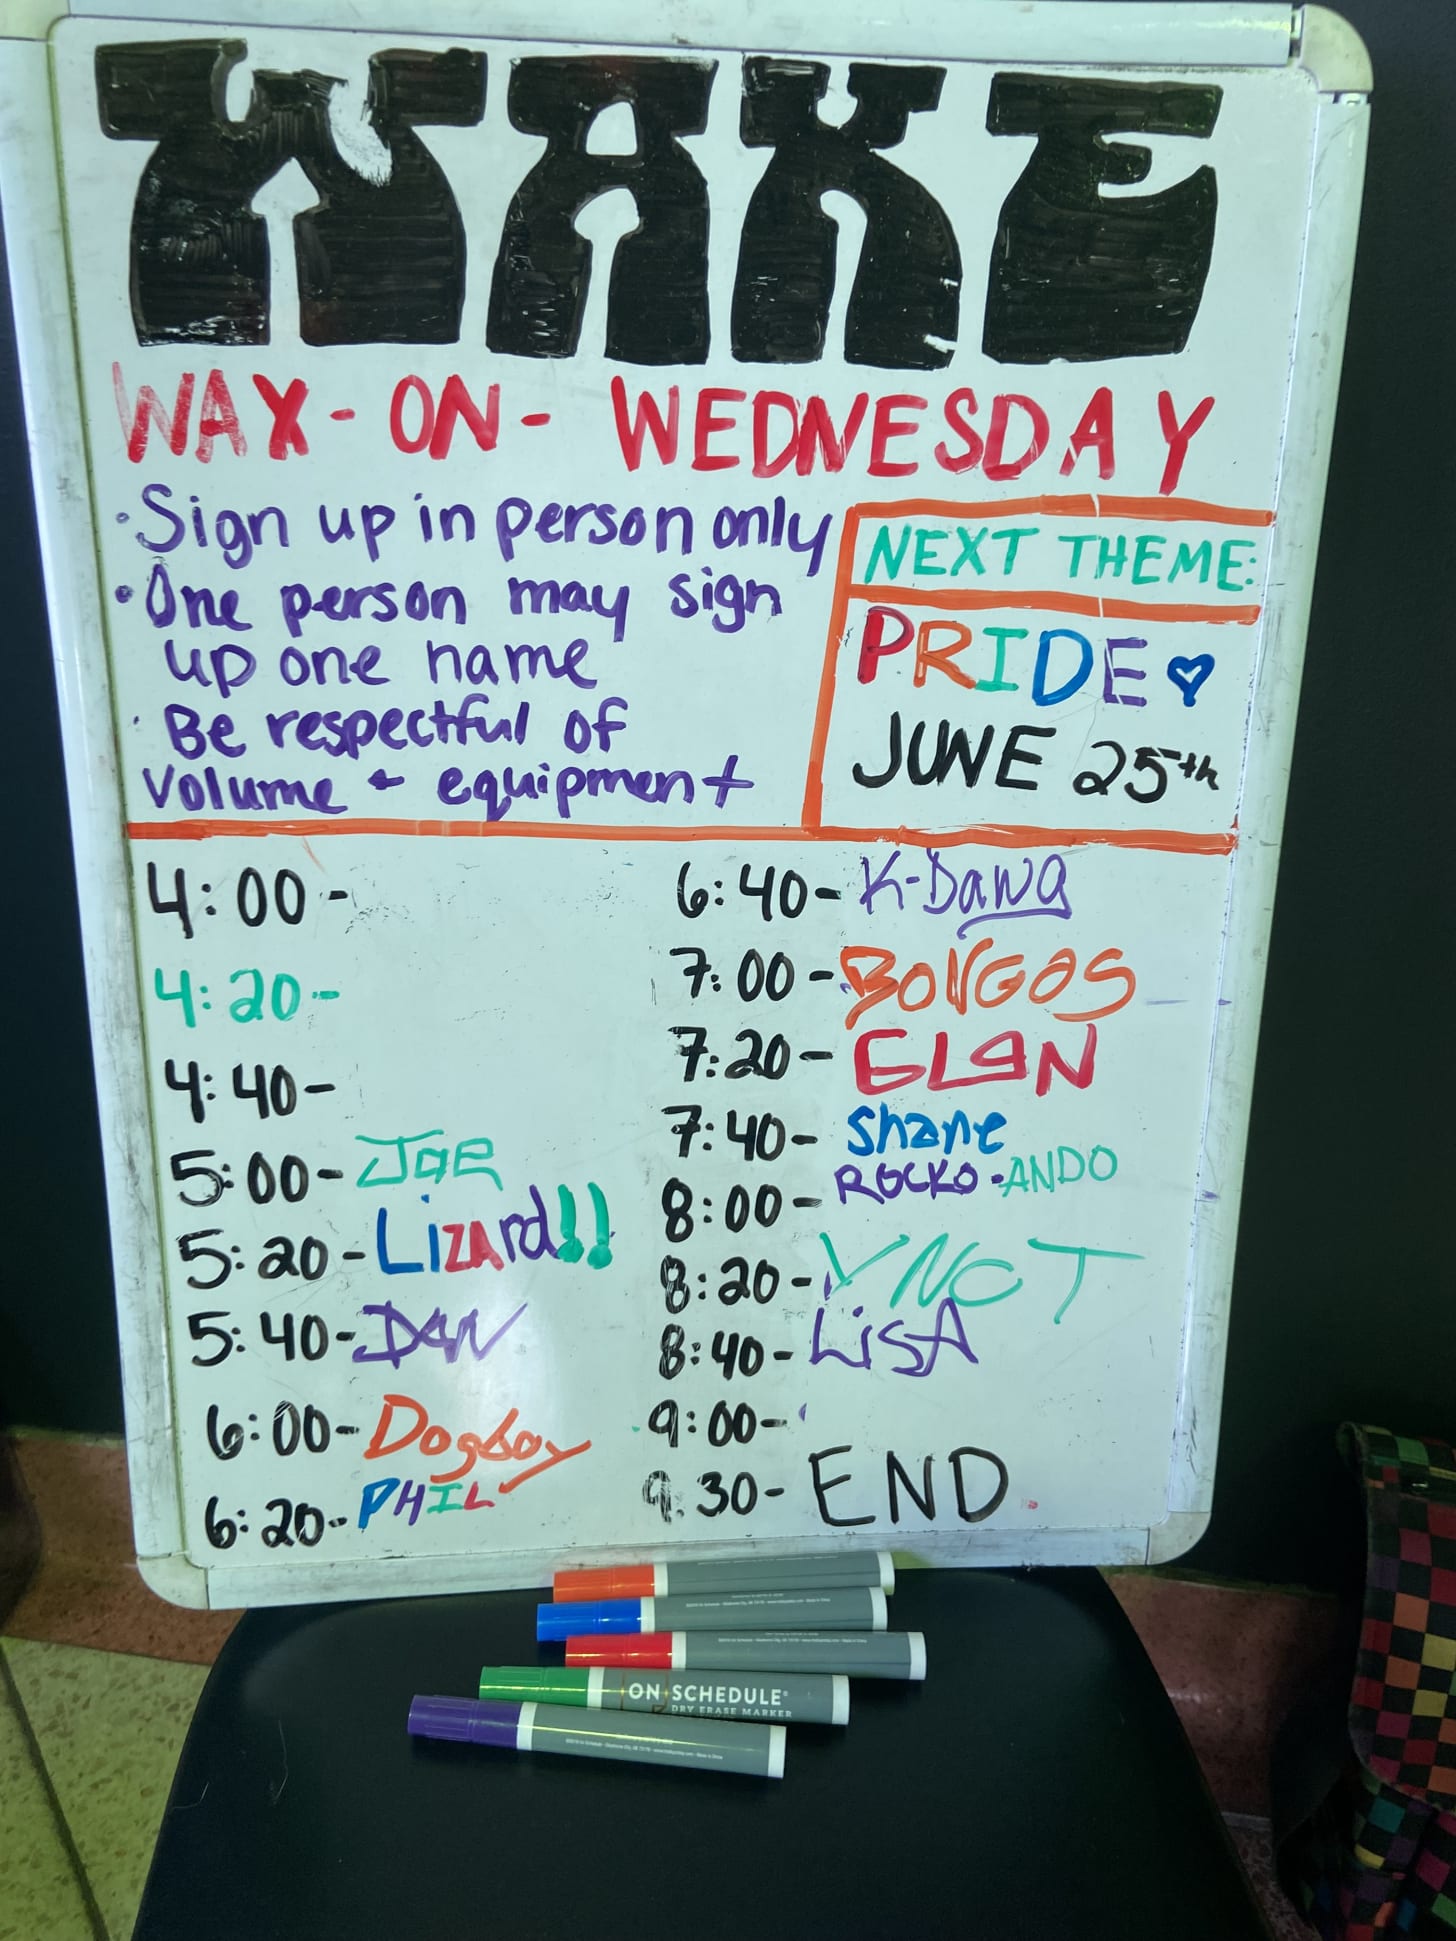 WAKE
WAX-ON-WEDNESDAY
· Sign up in person only
· One person may sign
up one name
· Be respectful of
volume + equipment
NEXT THEME:
PRIDE
JUNE 25th
4:00-
4:20-
4:40-
5:00- Joe
5:20- Lizard!!
5:40- Dan
6:00- Dogboy
6:20- PHIL
6:40- K-Dawg
7:00- BONGOS
7:20- GLEN
7:40- Shane
8:00- ROCKO-ANDO
8:20- YNOT
8:40- LiSA
9:00-
9:30- END
ON SCHEDULE®
DRY ERASE MARKER